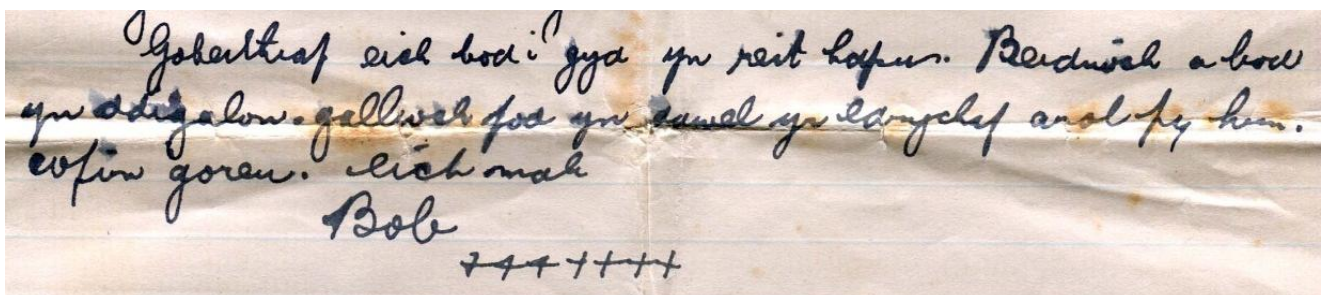 Goberthiaf eich bod i gyd yn reit hapus. Beidiwch a bod
yn ddigalon. gallwch fod yn dawel yr edrychaf arol fy hun.
cofion goreu. eich mab
Bob
+++++++